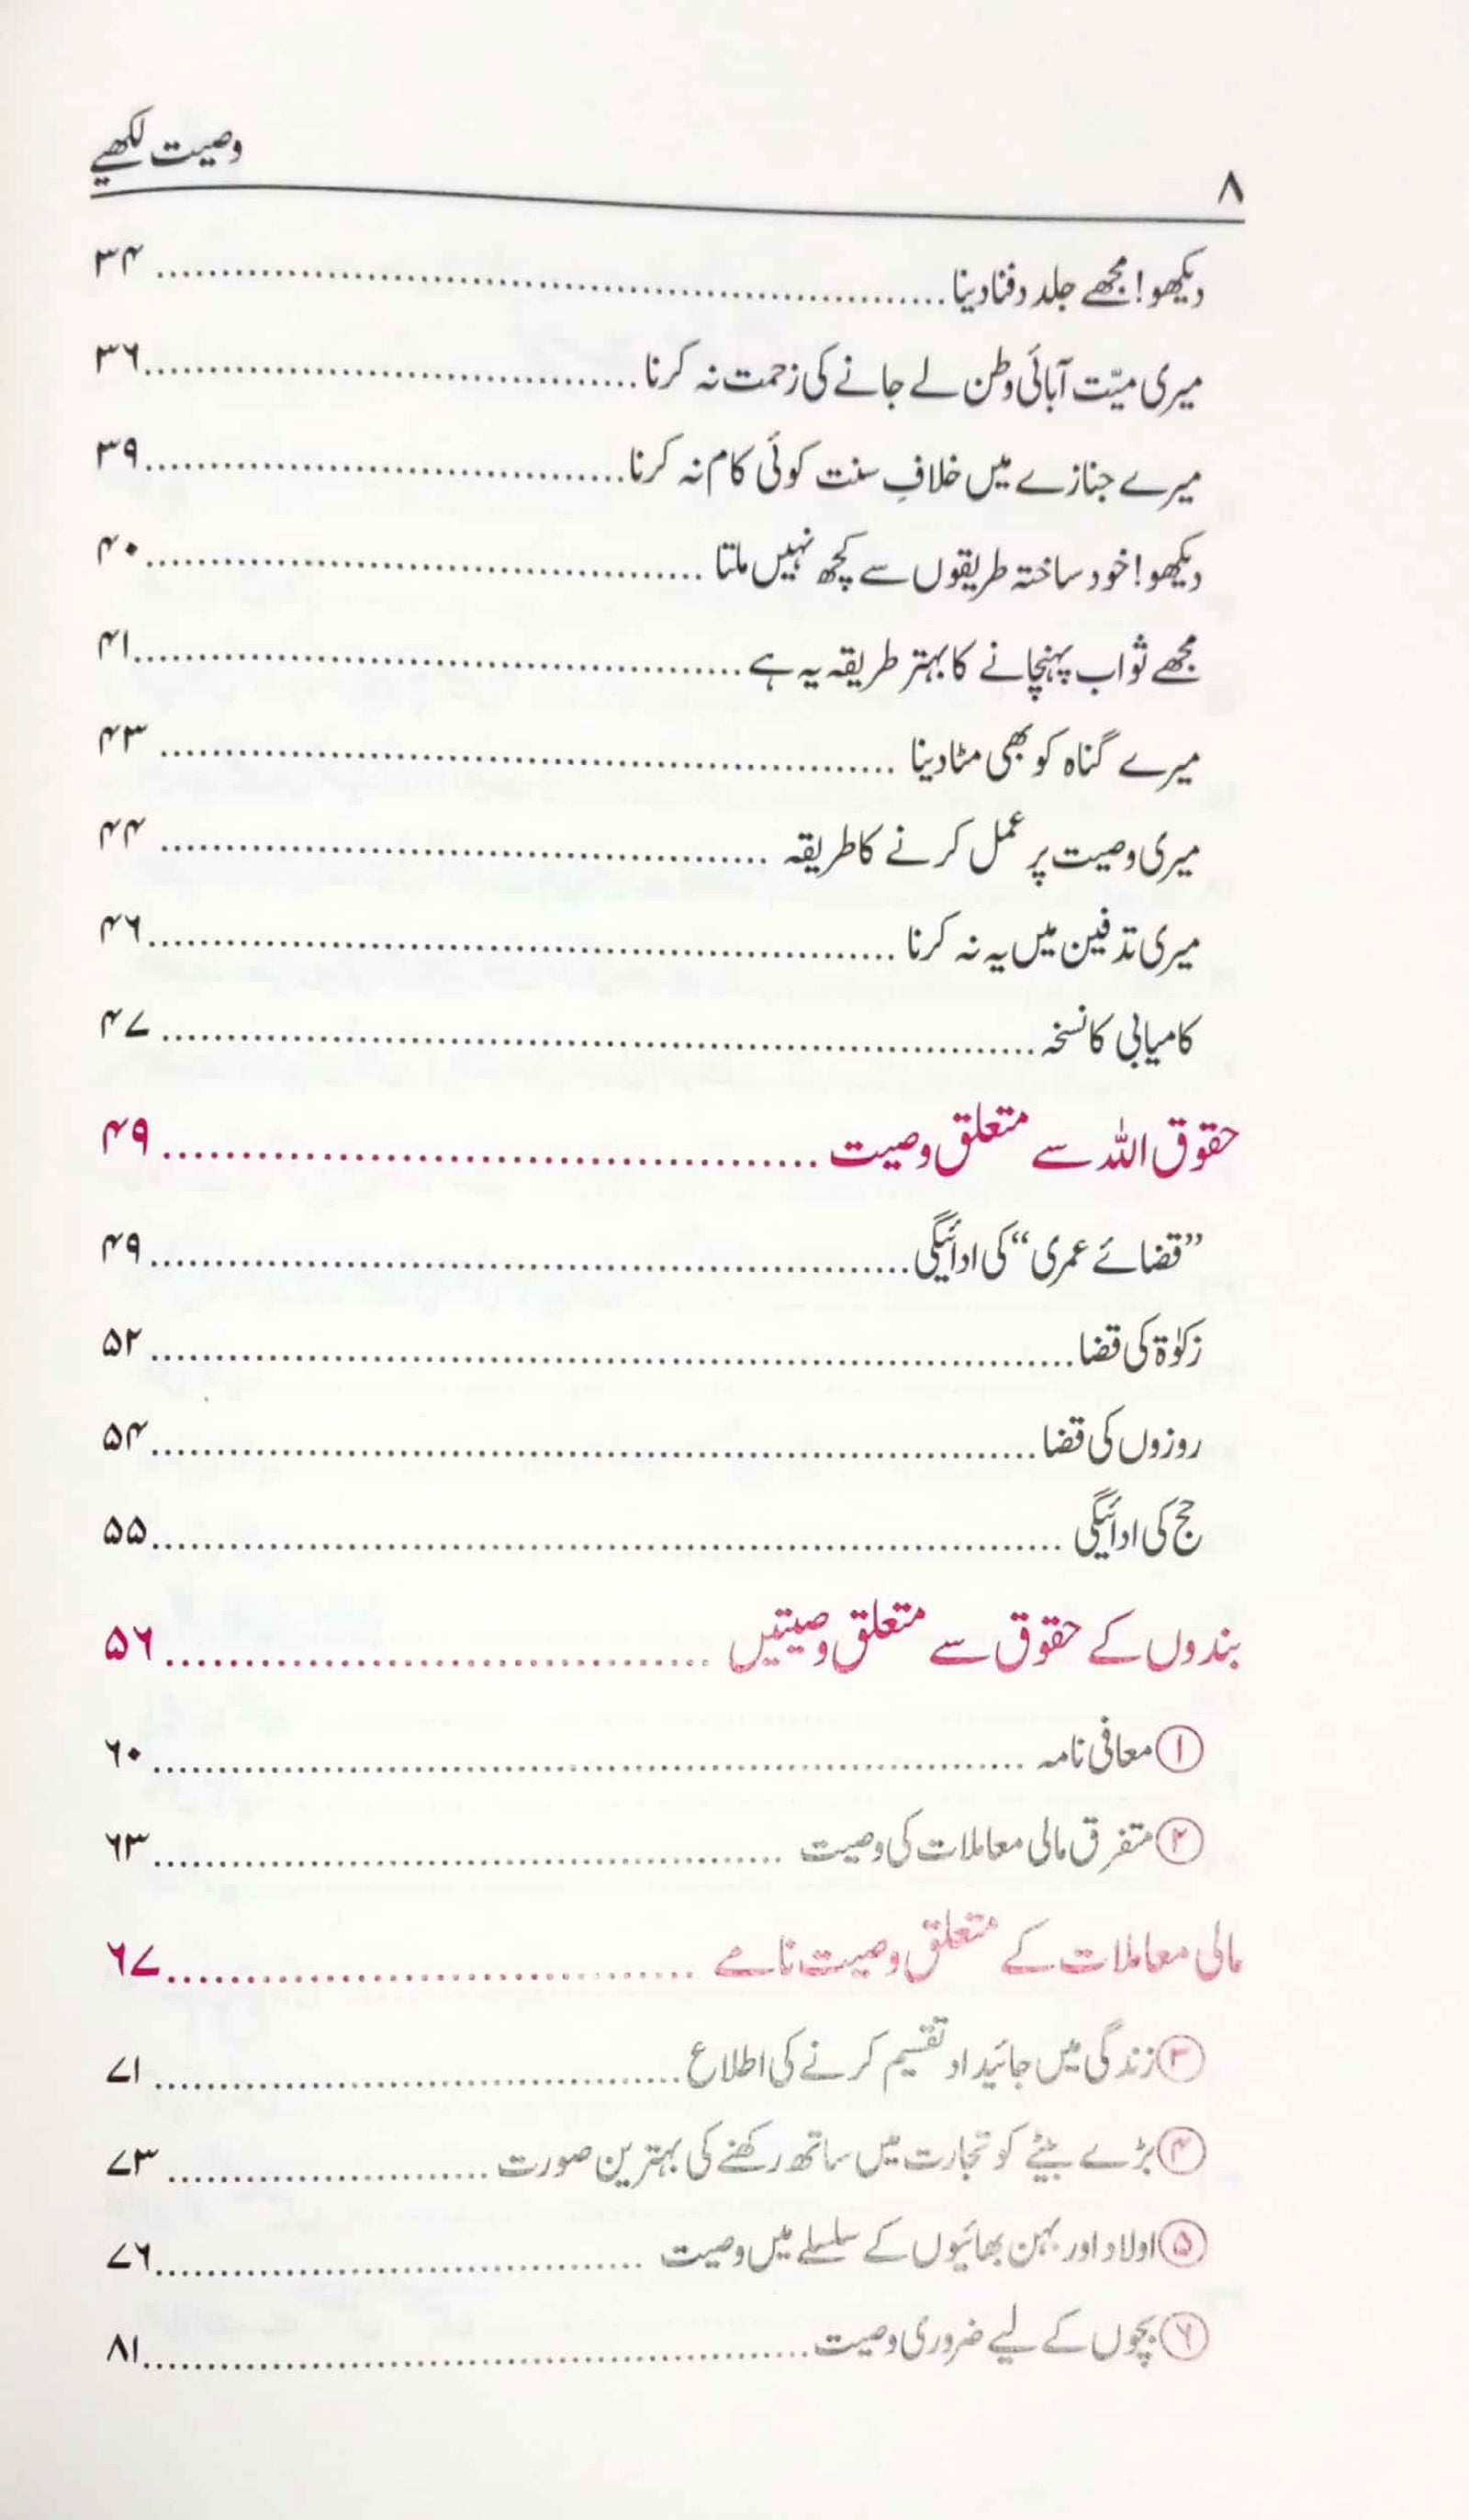 ۸ وصیت لکھیے
دیکھو! مجھے جلد دفنا دینا ........ ۳۴
میری میّت آبائی وطن لے جانے کی زحمت نہ کرنا ........ ۳۶
میرے جنازے میں خلافِ سنت کوئی کام نہ کرنا ........ ۳۹
دیکھو! خود ساختہ طریقوں سے کچھ نہیں ملتا ........ ۴۰
مجھے ثواب پہنچانے کا بہتر طریقہ یہ ہے ........ ۴۱
میرے گناہ کو بھی مٹا دینا ........ ۴۳
میری وصیت پر عمل کرنے کا طریقہ ........ ۴۴
میری تدفین میں یہ نہ کرنا ........ ۴۶
کامیابی کا نسخہ ........ ۴۷
حقوق اللہ سے متعلق وصیت ........ ۴۹
”قضائے عمری“ کی ادائیگی ........ ۴۹
زکوٰۃ کی قضا ........ ۵۲
روزوں کی قضا ........ ۵۴
حج کی ادائیگی ........ ۵۵
بندوں کے حقوق سے متعلق وصیتیں ........ ۵۶
① معافی نامہ ........ ۶۰
② متفرق مالی معاملات کی وصیت ........ ۶۳
مالی معاملات کے متعلق وصیت نامے ........ ۶۷
③ زندگی میں جائیداد تقسیم کرنے کی اطلاع ........ ۷۱
④ بڑے بیٹے کو تجارت میں ساتھ رکھنے کی بہترین صورت ........ ۷۳
⑤ اولاد اور بہن بھائیوں کے سلسلے میں وصیت ........ ۷۶
⑥ بچوں کے لیے ضروری وصیت ........ ۸۱